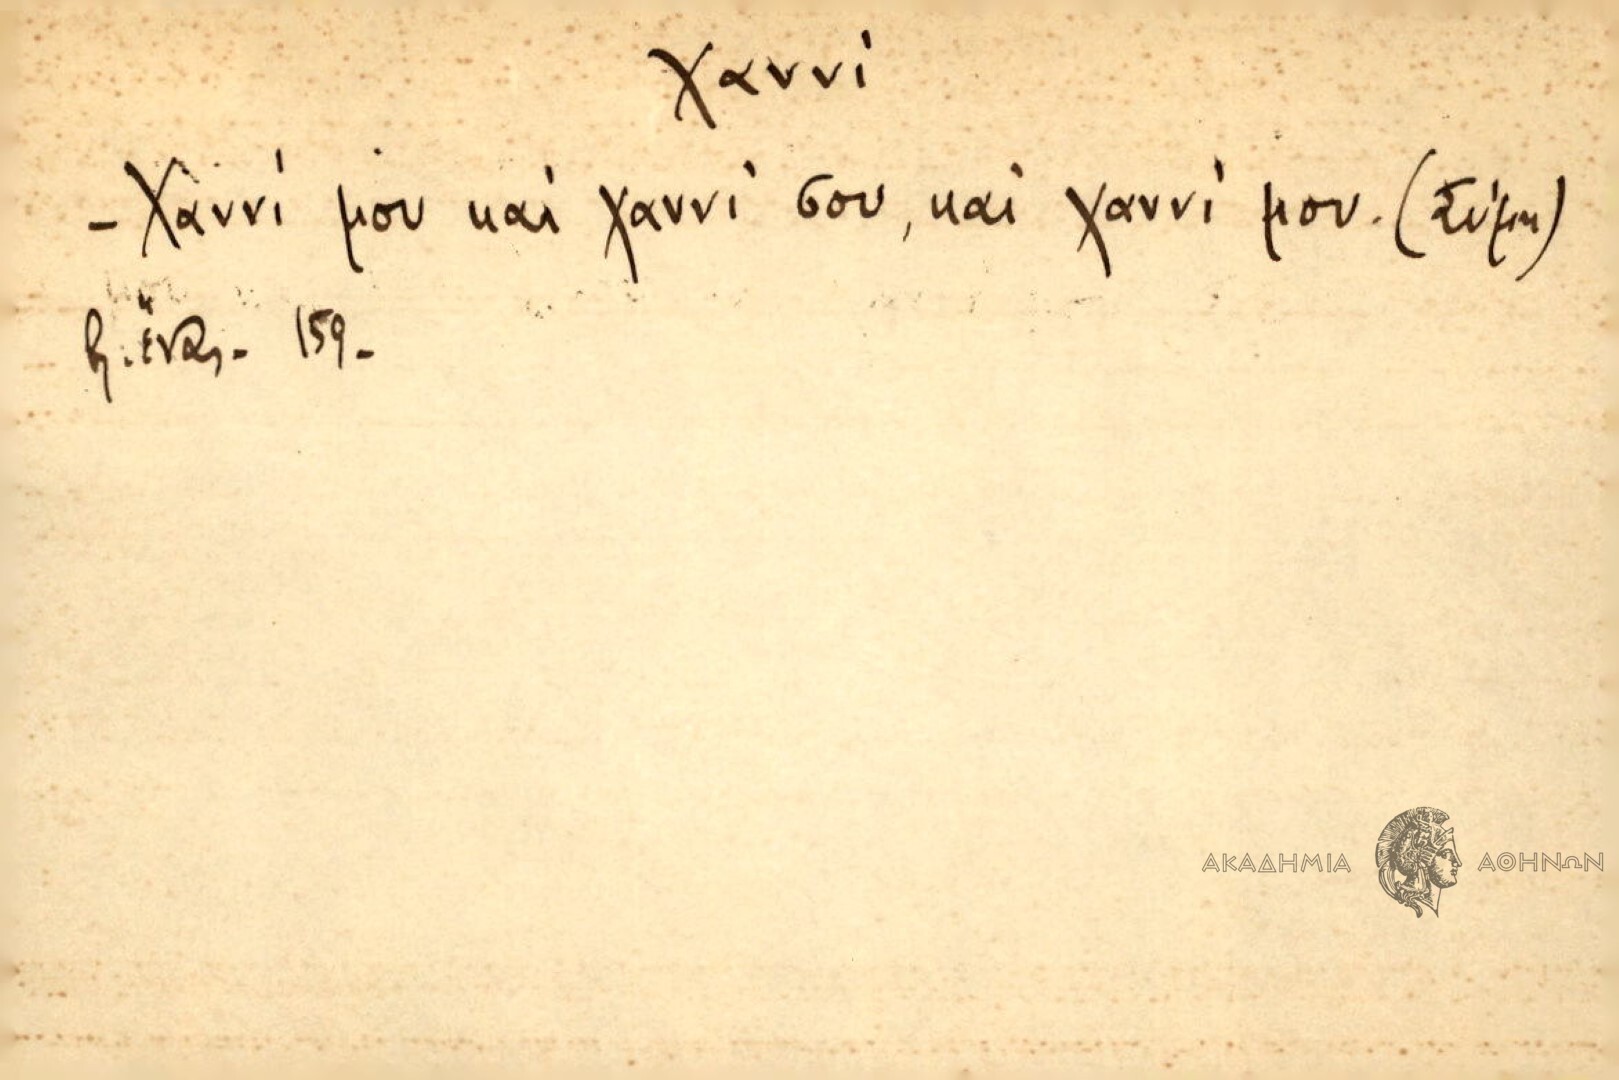 Χαννί
- Χαννί μου καὶ χαννί σου, καὶ χαννί μου. (Σύμη)
βλ. ἕνας. - 159 -
ΑΚΑΔΗΜΙΑ ΑΘΗΝΩΝ